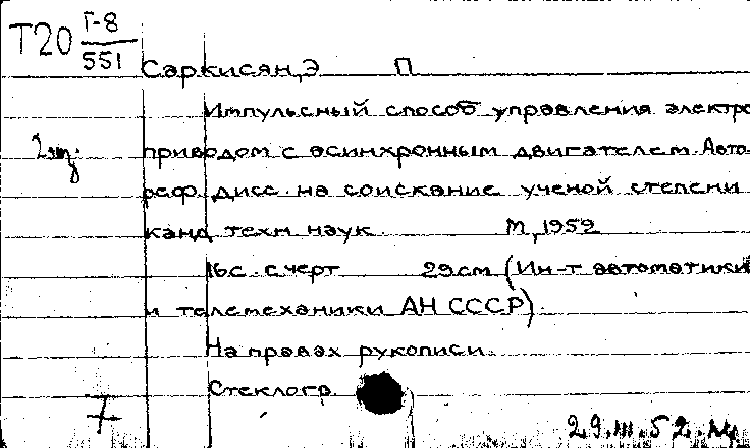 Т20 Г-8
551
Саркисян, Э П
Импульсный способ управления электро
2 экз.
приводом с асинхронным двигателем. Авто
реф. дисс. на соискание ученой степени
канд техн наук М, 1952
16с. с черт 29см (Ин-т автоматики
и телемеханики АН СССР).
На правах рукописи.
Стеклогр.
7
29.III.52.